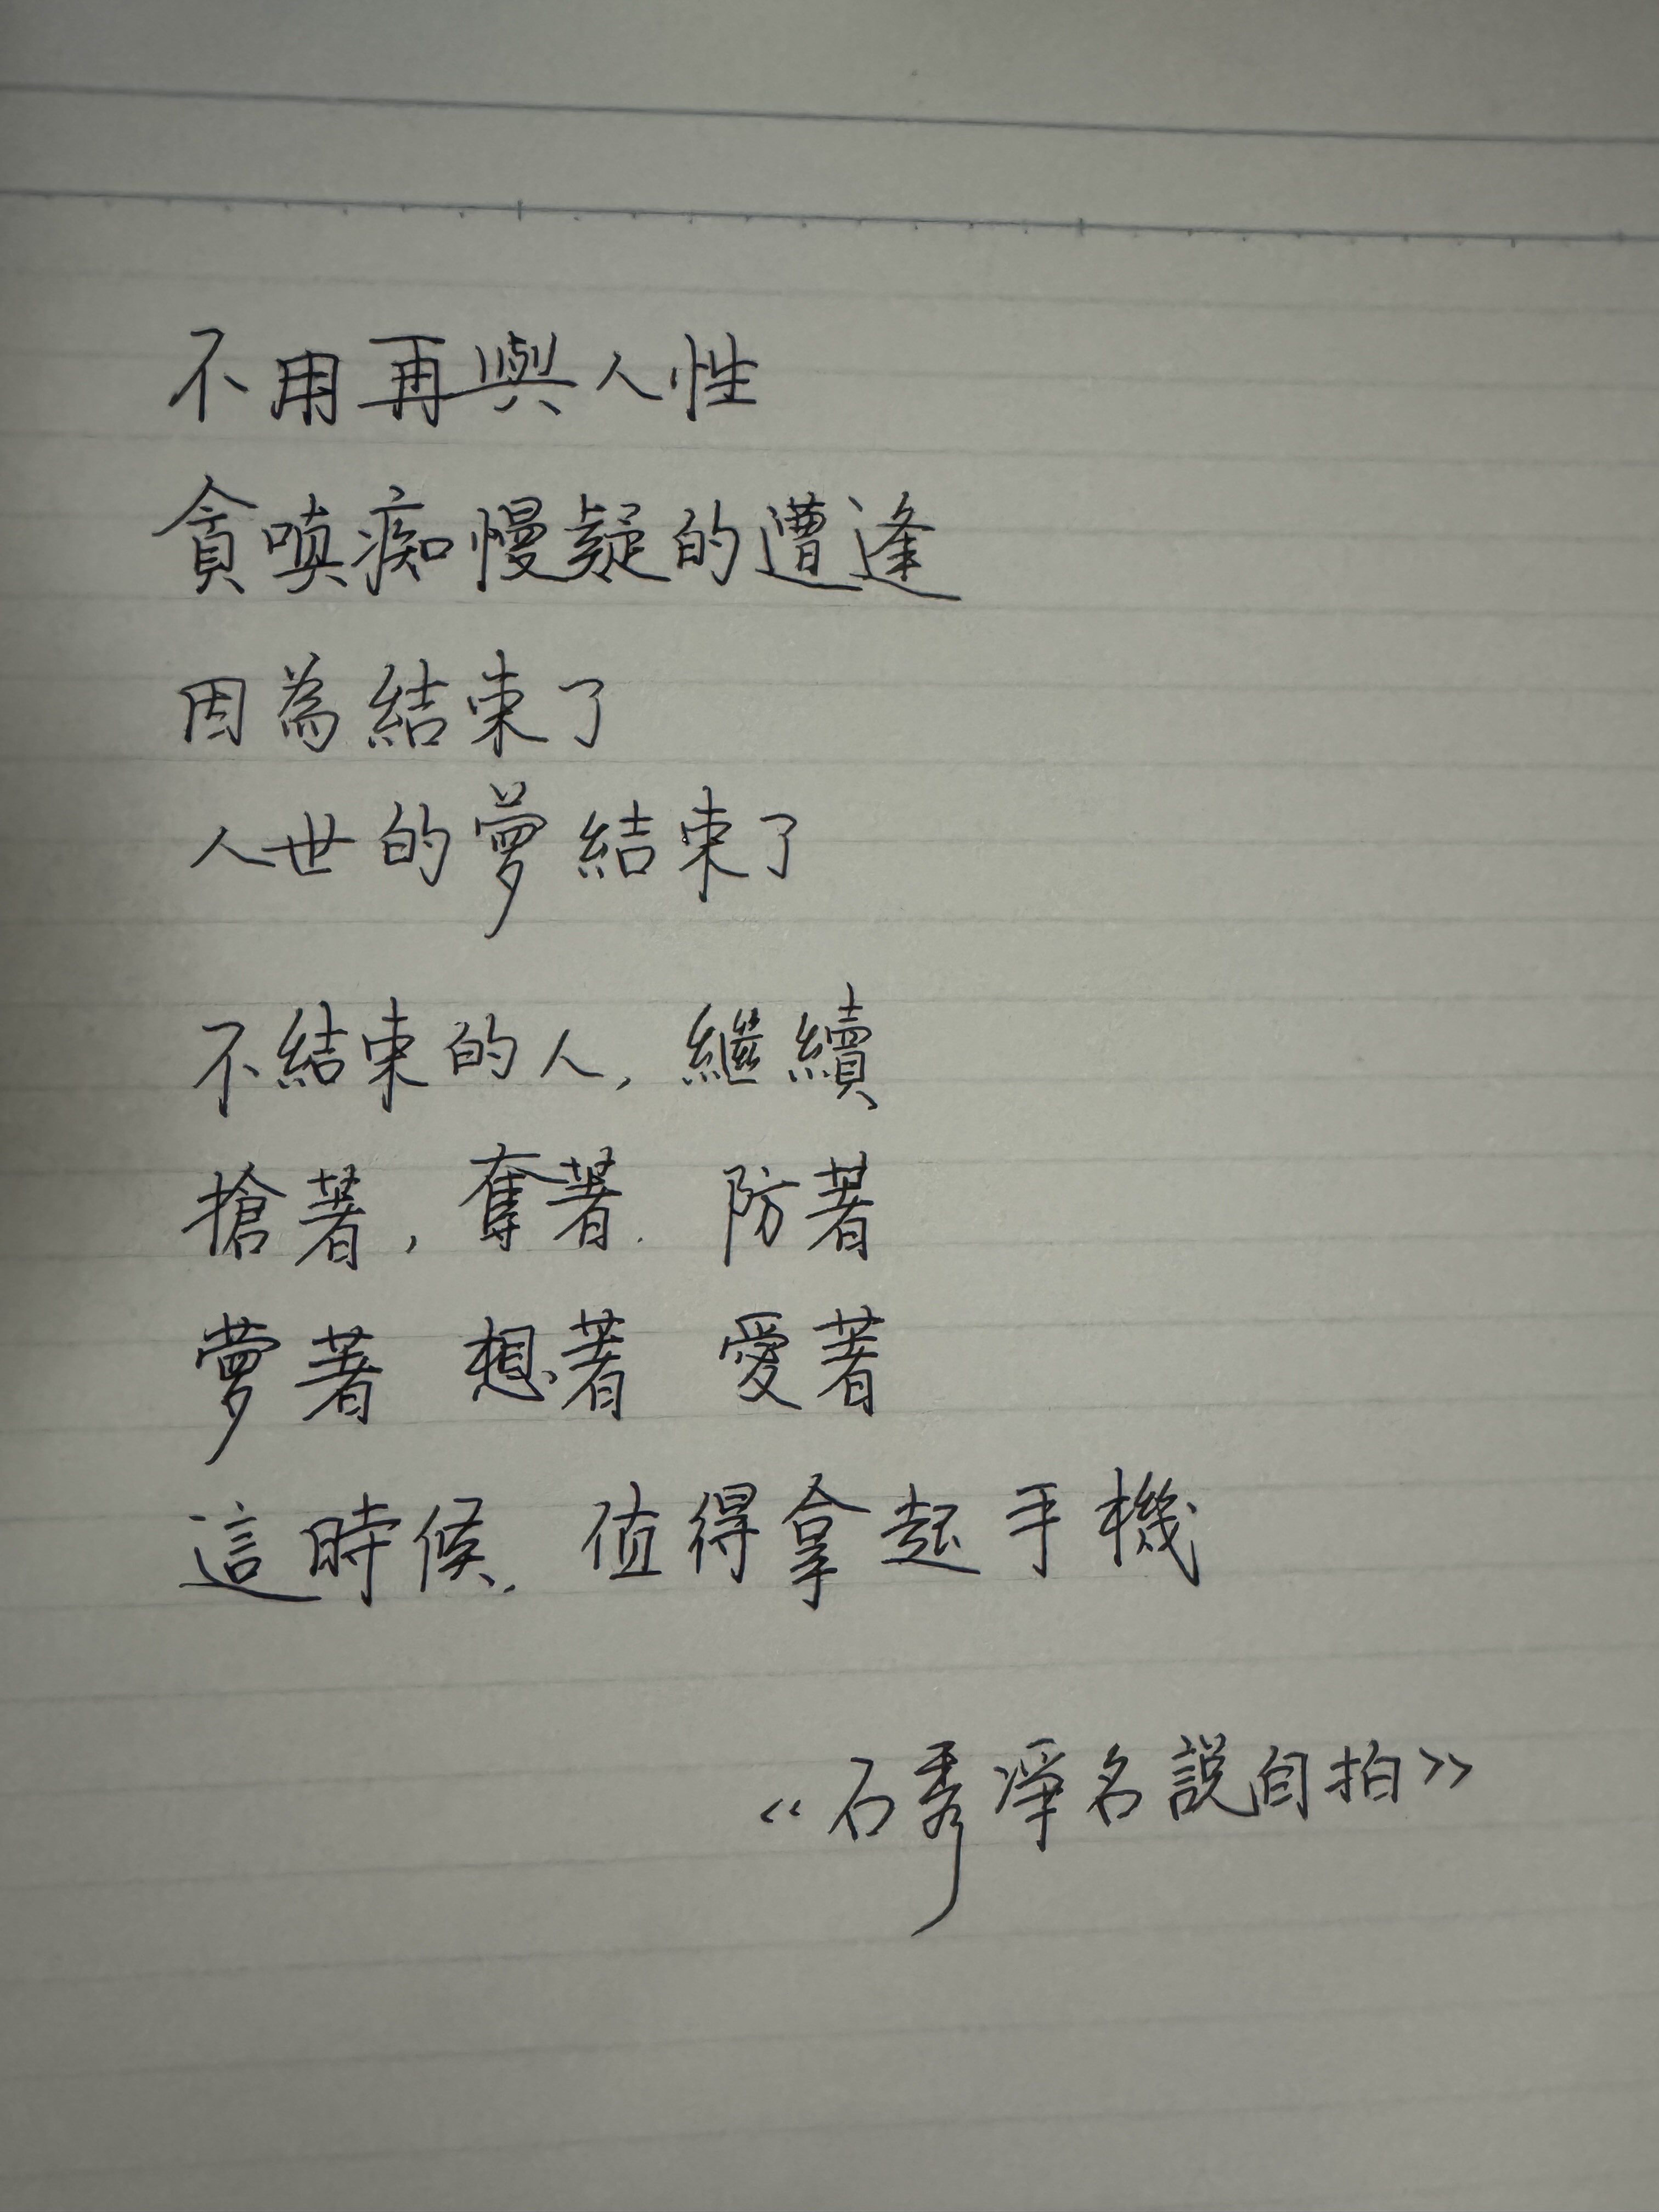 不用再與人性
貪嗔痴慢疑的遭逢
因為結束了
人世的夢結束了
不結束的人，繼續
搶著，奪著．防著
夢著 想著 愛著
這時候，值得拿起手機
《石秀淨名說自拍》